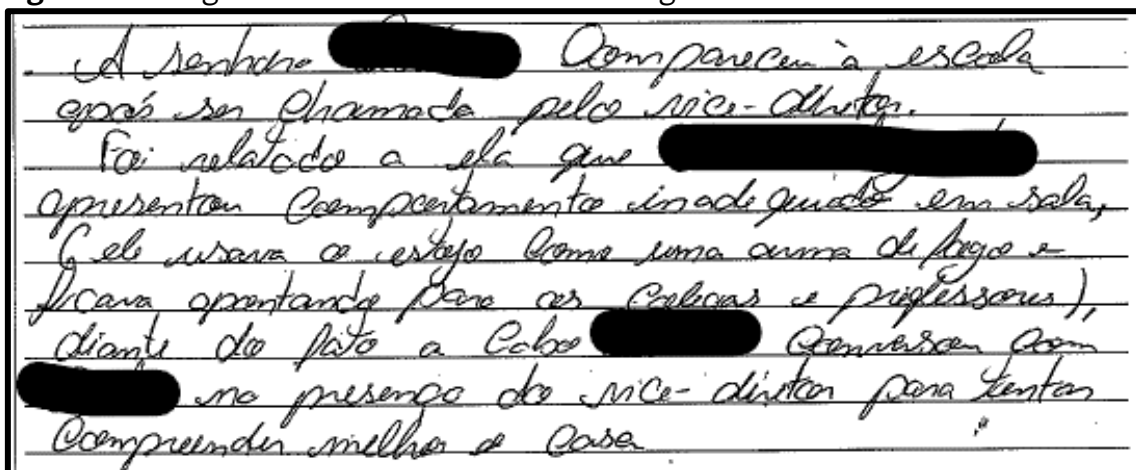 A senhora Compareceu à escola
após ser Chamada pelo vice-diretor.
Foi relatado a ela que
apresentou Comportamento inadequado em sala,
(ele usava o estojo Como uma arma de fogo e
ficava apontando para os Colegas e professores),
diante do fato a Cabo Conversou Com
na presença do vice-diretor para tentar
Compreender melhor o Caso